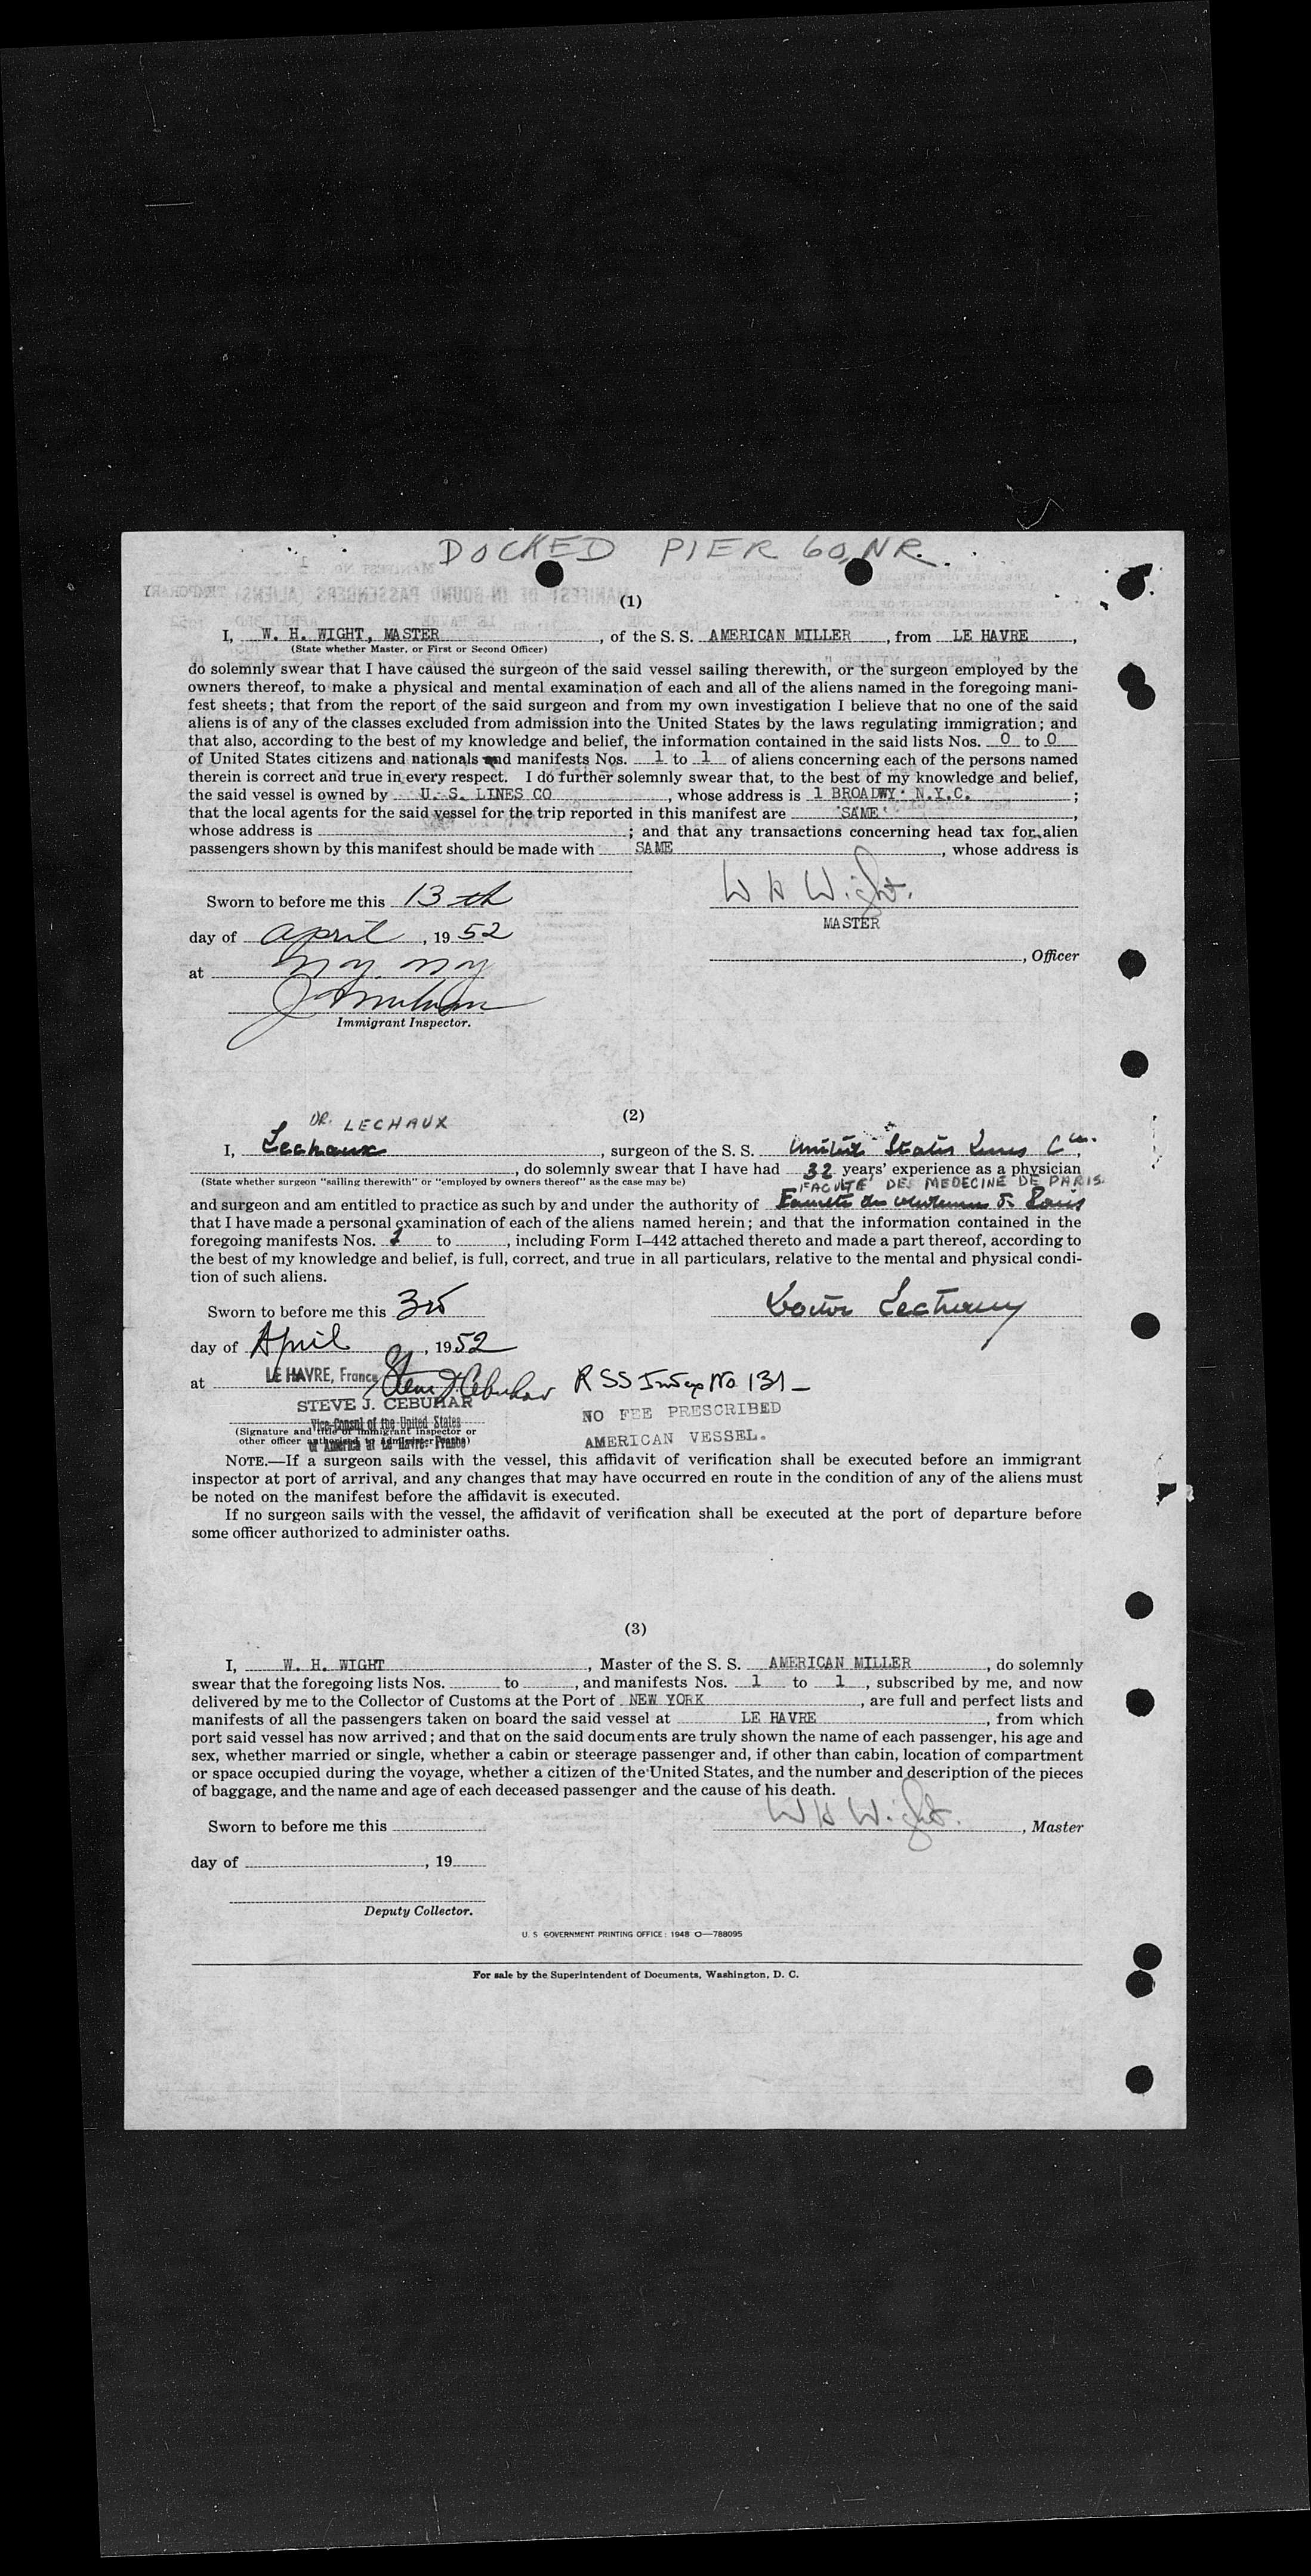 DOCKED PIER 60, NR.
(1)
I, W. H. WIGHT, MASTER, of the S. S. AMERICAN MILLER, from LE HAVRE,
(State whether Master, or First or Second Officer)
do solemnly swear that I have caused the surgeon of the said vessel sailing therewith, or the surgeon employed by the
owners thereof, to make a physical and mental examination of each and all of the aliens named in the foregoing mani-
fest sheets; that from the report of the said surgeon and from my own investigation I believe that no one of the said
aliens is of any of the classes excluded from admission into the United States by the laws regulating immigration; and
that also, according to the best of my knowledge and belief, the information contained in the said lists Nos. 0 to 0
of United States citizens and nationals and manifests Nos. 1 to 1 of aliens concerning each of the persons named
therein is correct and true in every respect. I do further solemnly swear that, to the best of my knowledge and belief,
the said vessel is owned by U. S. LINES CO, whose address is 1 BROADWY. N.Y.C.;
that the local agents for the said vessel for the trip reported in this manifest are SAME,
whose address is ; and that any transactions concerning head tax for alien
passengers shown by this manifest should be made with SAME, whose address is
W H Wight.
Sworn to before me this 13th
MASTER
day of April, 1952
, Officer
at NY. NY
Immigrant Inspector.
DR. LECHAUX
(2)
I, Lechaux, surgeon of the S. S. United States Lines Co.
, do solemnly swear that I have had 32 years' experience as a physician
(State whether surgeon "sailing therewith" or "employed by owners thereof" as the case may be)
FACULTÉ DE MEDECINE DE PARIS
and surgeon and am entitled to practice as such by and under the authority of
that I have made a personal examination of each of the aliens named herein; and that the information contained in the
foregoing manifests Nos. 1 to , including Form I-442 attached thereto and made a part thereof, according to
the best of my knowledge and belief, is full, correct, and true in all particulars, relative to the mental and physical condi-
tion of such aliens.
Sworn to before me this 3rd
Doctor Lechaux
day of April, 1952
at LE HAVRE, France Steve J. Cebuhar
R SS No 131
STEVE J. CEBUHAR
NO FEE PRESCRIBED
Vice-Consul of the United States
of America at Le Havre, France
(Signature and title of immigrant inspector or
other officer authorized to administer oaths)
AMERICAN VESSEL.
NOTE.—If a surgeon sails with the vessel, this affidavit of verification shall be executed before an immigrant
inspector at port of arrival, and any changes that may have occurred en route in the condition of any of the aliens must
be noted on the manifest before the affidavit is executed.
If no surgeon sails with the vessel, the affidavit of verification shall be executed at the port of departure before
some officer authorized to administer oaths.
(3)
I, W. H. WIGHT, Master of the S. S. AMERICAN MILLER, do solemnly
swear that the foregoing lists Nos. to , and manifests Nos. 1 to 1, subscribed by me, and now
delivered by me to the Collector of Customs at the Port of NEW YORK, are full and perfect lists and
manifests of all the passengers taken on board the said vessel at LE HAVRE, from which
port said vessel has now arrived; and that on the said documents are truly shown the name of each passenger, his age and
sex, whether married or single, whether a cabin or steerage passenger and, if other than cabin, location of compartment
or space occupied during the voyage, whether a citizen of the United States, and the number and description of the pieces
of baggage, and the name and age of each deceased passenger and the cause of his death.
Sworn to before me this
W H Wight., Master
day of , 19
Deputy Collector.
U. S GOVERNMENT PRINTING OFFICE: 1948 O—788095
For sale by the Superintendent of Documents, Washington, D. C.